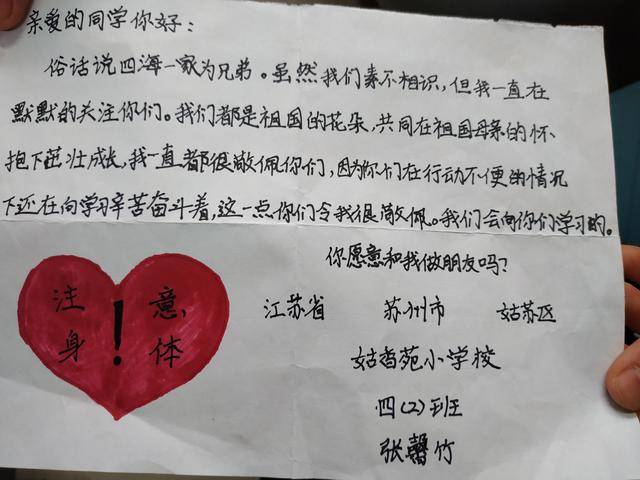 亲爱的同学你好：
俗话说四海一家为兄弟。虽然我们素不相识，但我一直在
默默的关注你们。我们都是祖国的花朵，共同在祖国母亲的怀
抱下茁壮成长，我一直都很敬佩你们，因为你们在行动不便的情况
下还在向学习辛苦奋斗着，这一点你们令我很敬佩。我们会向你们学习的。
你愿意和我做朋友吗？
江苏省 苏州市 姑苏区
姑香苑小学校
四（2）班
张馨竹
注 意，
身 ！ 体